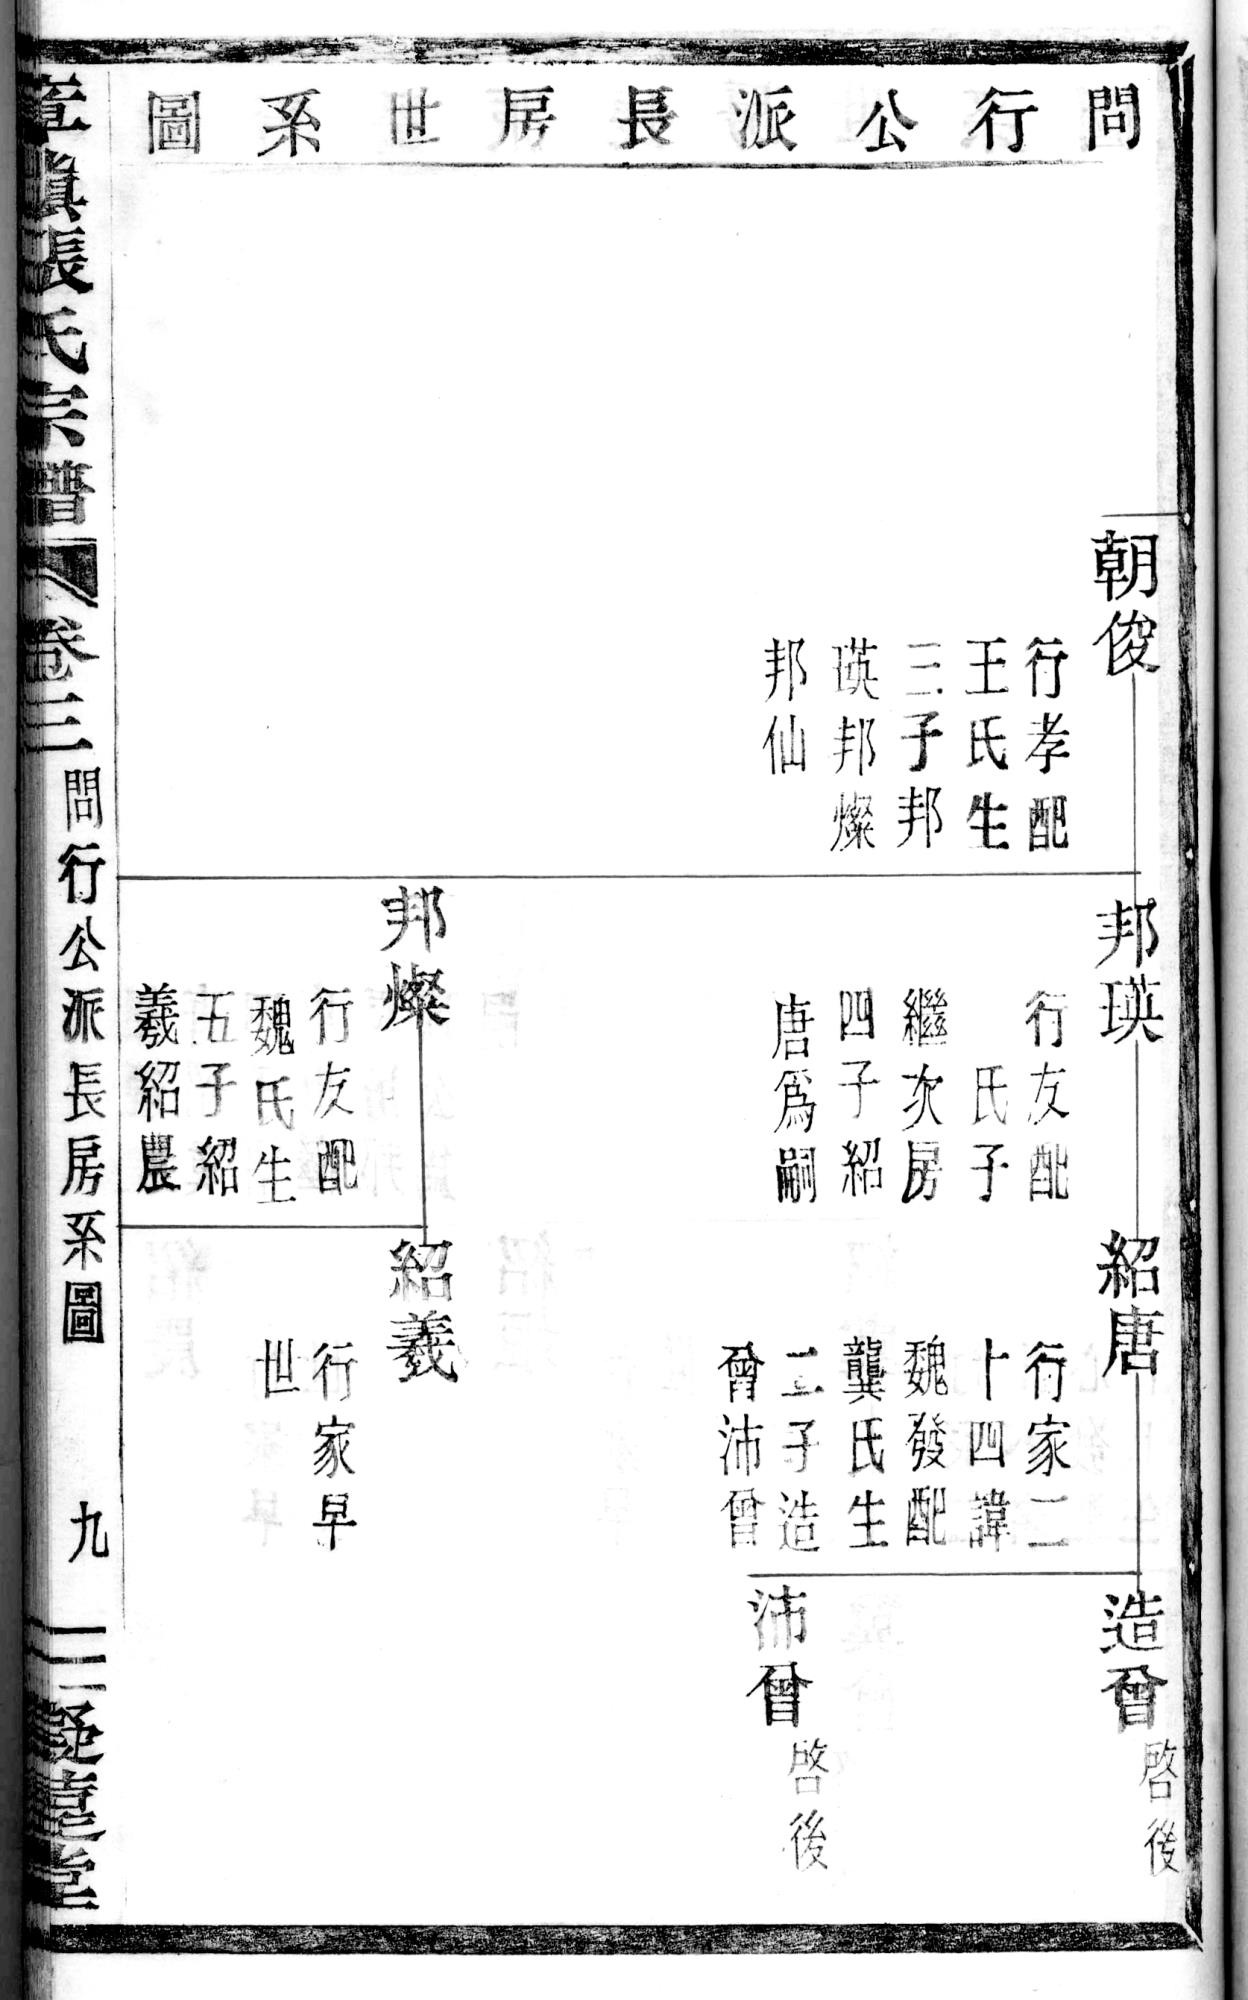 問行公派長房世系圖
朝俊
行孝配
王氏生
三子邦
瑛邦燦
邦仙
邦瑛
行友配
氏子
繼次房
四子紹
唐爲嗣
邦燦
行友配
魏氏生
五子紹
羲紹農
紹唐
行家二
十四諱
魏發配
龔氏生
二子造
曾沛曾
紹羲
行家早
世
造曾
啓後
沛曾
啓後
張氏宗譜
卷三
問行公派長房系圖
九
堂